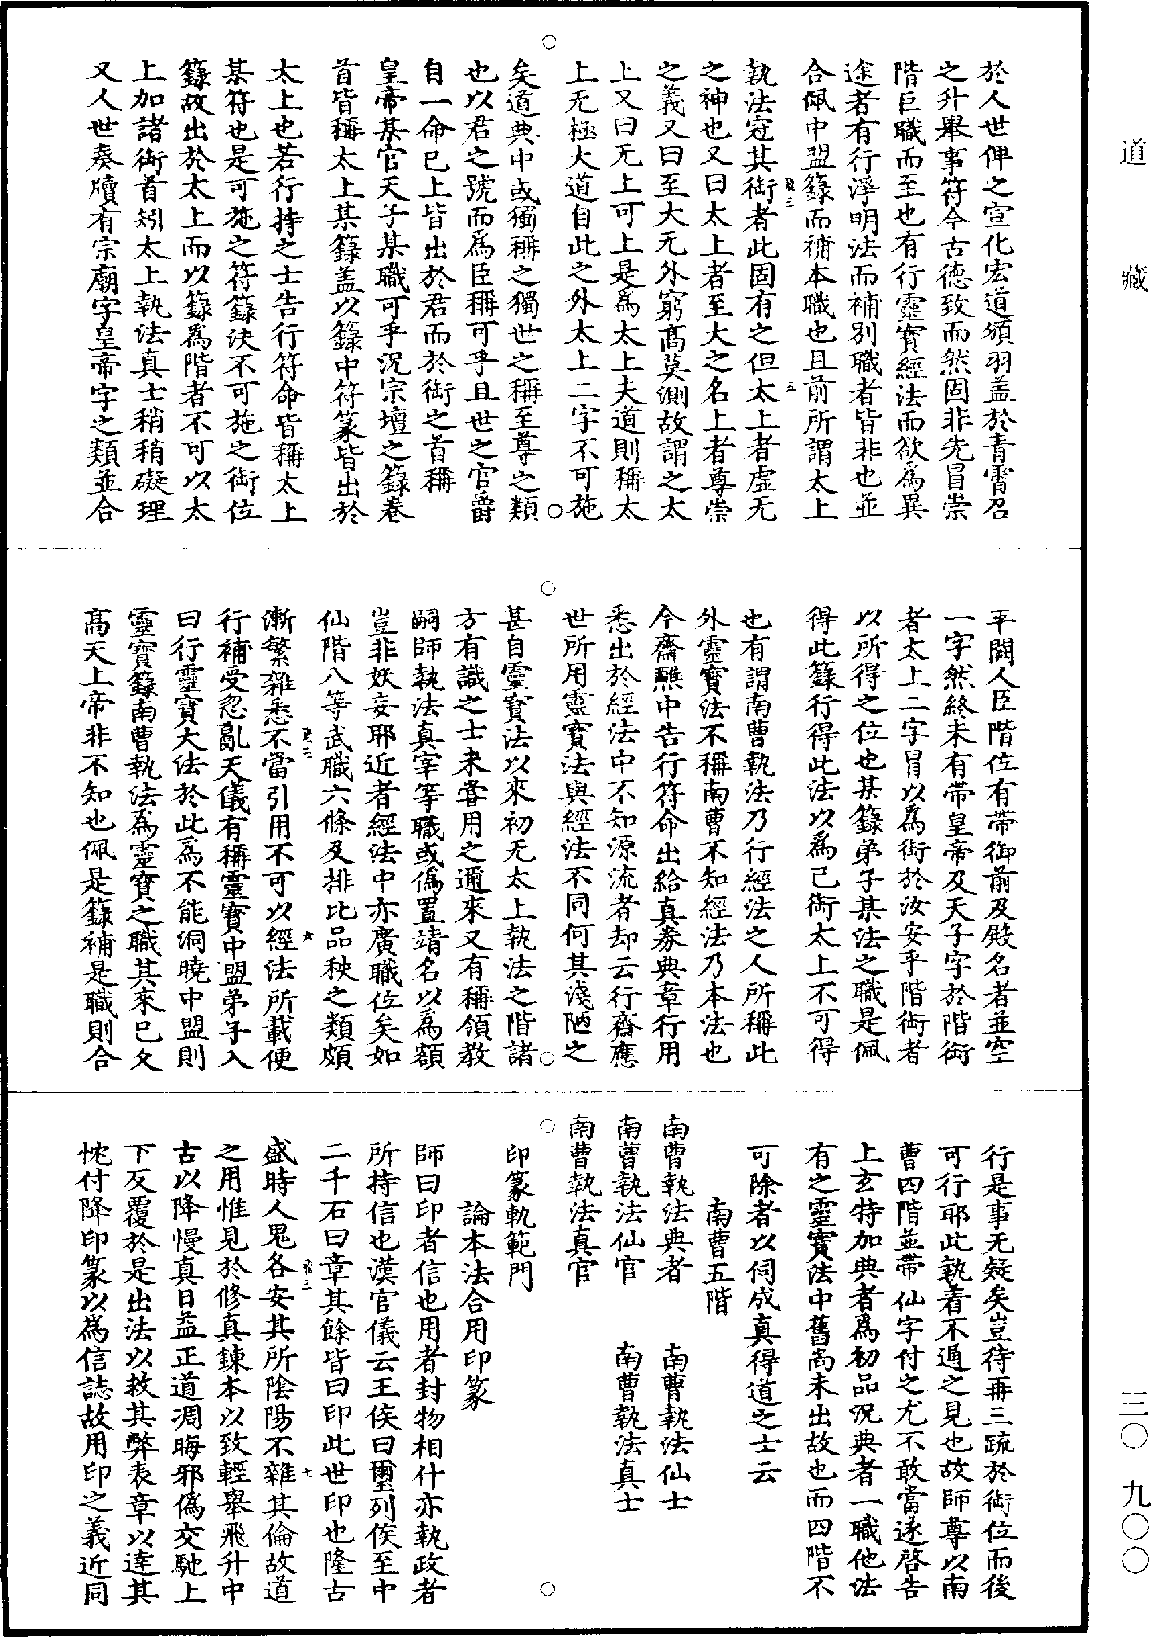 於人世俾之宣化宏道頒羽盖於青霄召
之升舉事符今古德致而然固非先冒崇
階巨職而至也有行靈寶經法而欲為異
途者有行淨明法而補别職者皆非也並
合佩中盟籙而補本職也且前所謂太上
執法冠其銜者此固有之但太上者虚无
之神也又曰太上者至大之名上者尊崇
之義又曰至大无外窮髙莫測故謂之太
上又曰无上可上是為太上夫道則稱太
上无極大道自此之外太上二字不可施
矣道典中或獨稱之獨世之稱至尊之類
也以君之號而為臣稱可乎且世之官爵
自一命已上皆出於君而於銜之首稱
皇帝某官天子某職可乎況宗壇之籙卷
首皆稱太上某籙盖以籙中符篆皆出於
太上也若行持之士告行符命皆稱太上
某符也是可施之符籙決不可施之銜位
籙故出於太上而以籙為階者不可以太
上加諸銜首矧太上執法真士稍稍礙理
又人世奏牘有宗廟字皇帝字之類並合
平闕人臣階位有帶御前及殿名者並空
一字然終未有帶皇帝及天子字於階銜
者太上二字冒以為銜於汝安乎階銜者
以所得之位也某籙弟子某法之職是佩
得此籙行得此法以為己銜太上不可得
也有謂南曹執法乃行經法之人所稱此
外靈寶法不稱南曹不知經法乃本法也
今齋醮中告行符命出給真券典章行用
悉出於經法中不知源流者却云行齋應
世所用靈寶法與經法不同何其淺陋之
甚自靈寶法以來初无太上執法之階諸
方有識之士未嘗用之邇來又有稱領教
嗣師執法真宰等職或偽置靖名以為額
豈非妖妄耶近者經法中亦廣職位矣如
仙階八等武職六條及排比品秩之類頗
漸繁雜悉不當引用不可以經法所載便
行補受忽亂天儀有稱靈寶中盟弟子入
曰行靈寶大法於此為不能洞曉中盟則
靈寶籙南曹執法為靈寶之職其來已久
髙天上帝非不知也佩是籙補是職則合
行是事无疑矣豈待再三疏於銜位而後
可行耶此執着不通之見也故師尊以南
曹四階並帶仙字付之尤不敢當遂啓告
上玄特加典者為初品況典者一職他法
有之靈寶法中舊尚未出故也而四階不
可除者以伺成真得道之士云
南曹五階
南曹執法典者 南曹執法仙士
南曹執法仙官 南曹執法真士
南曹執法真官
印篆軌範門
論本法合用印篆
師曰印者信也用者封物相什亦執政者
所持信也漢官儀云王侯曰璽列侯至中
二千石曰章其餘皆曰印此世印也隆古
盛時人鬼各安其所陰陽不雜其倫故道
之用惟見於修真鍊本以致輕舉飛升中
古以降慢真日益正道凋晦邪偽交馳上
下反覆於是出法以救其弊表章以達其
忱付降印篆以為信誌故用印之義近同
道藏
三〇 九〇〇